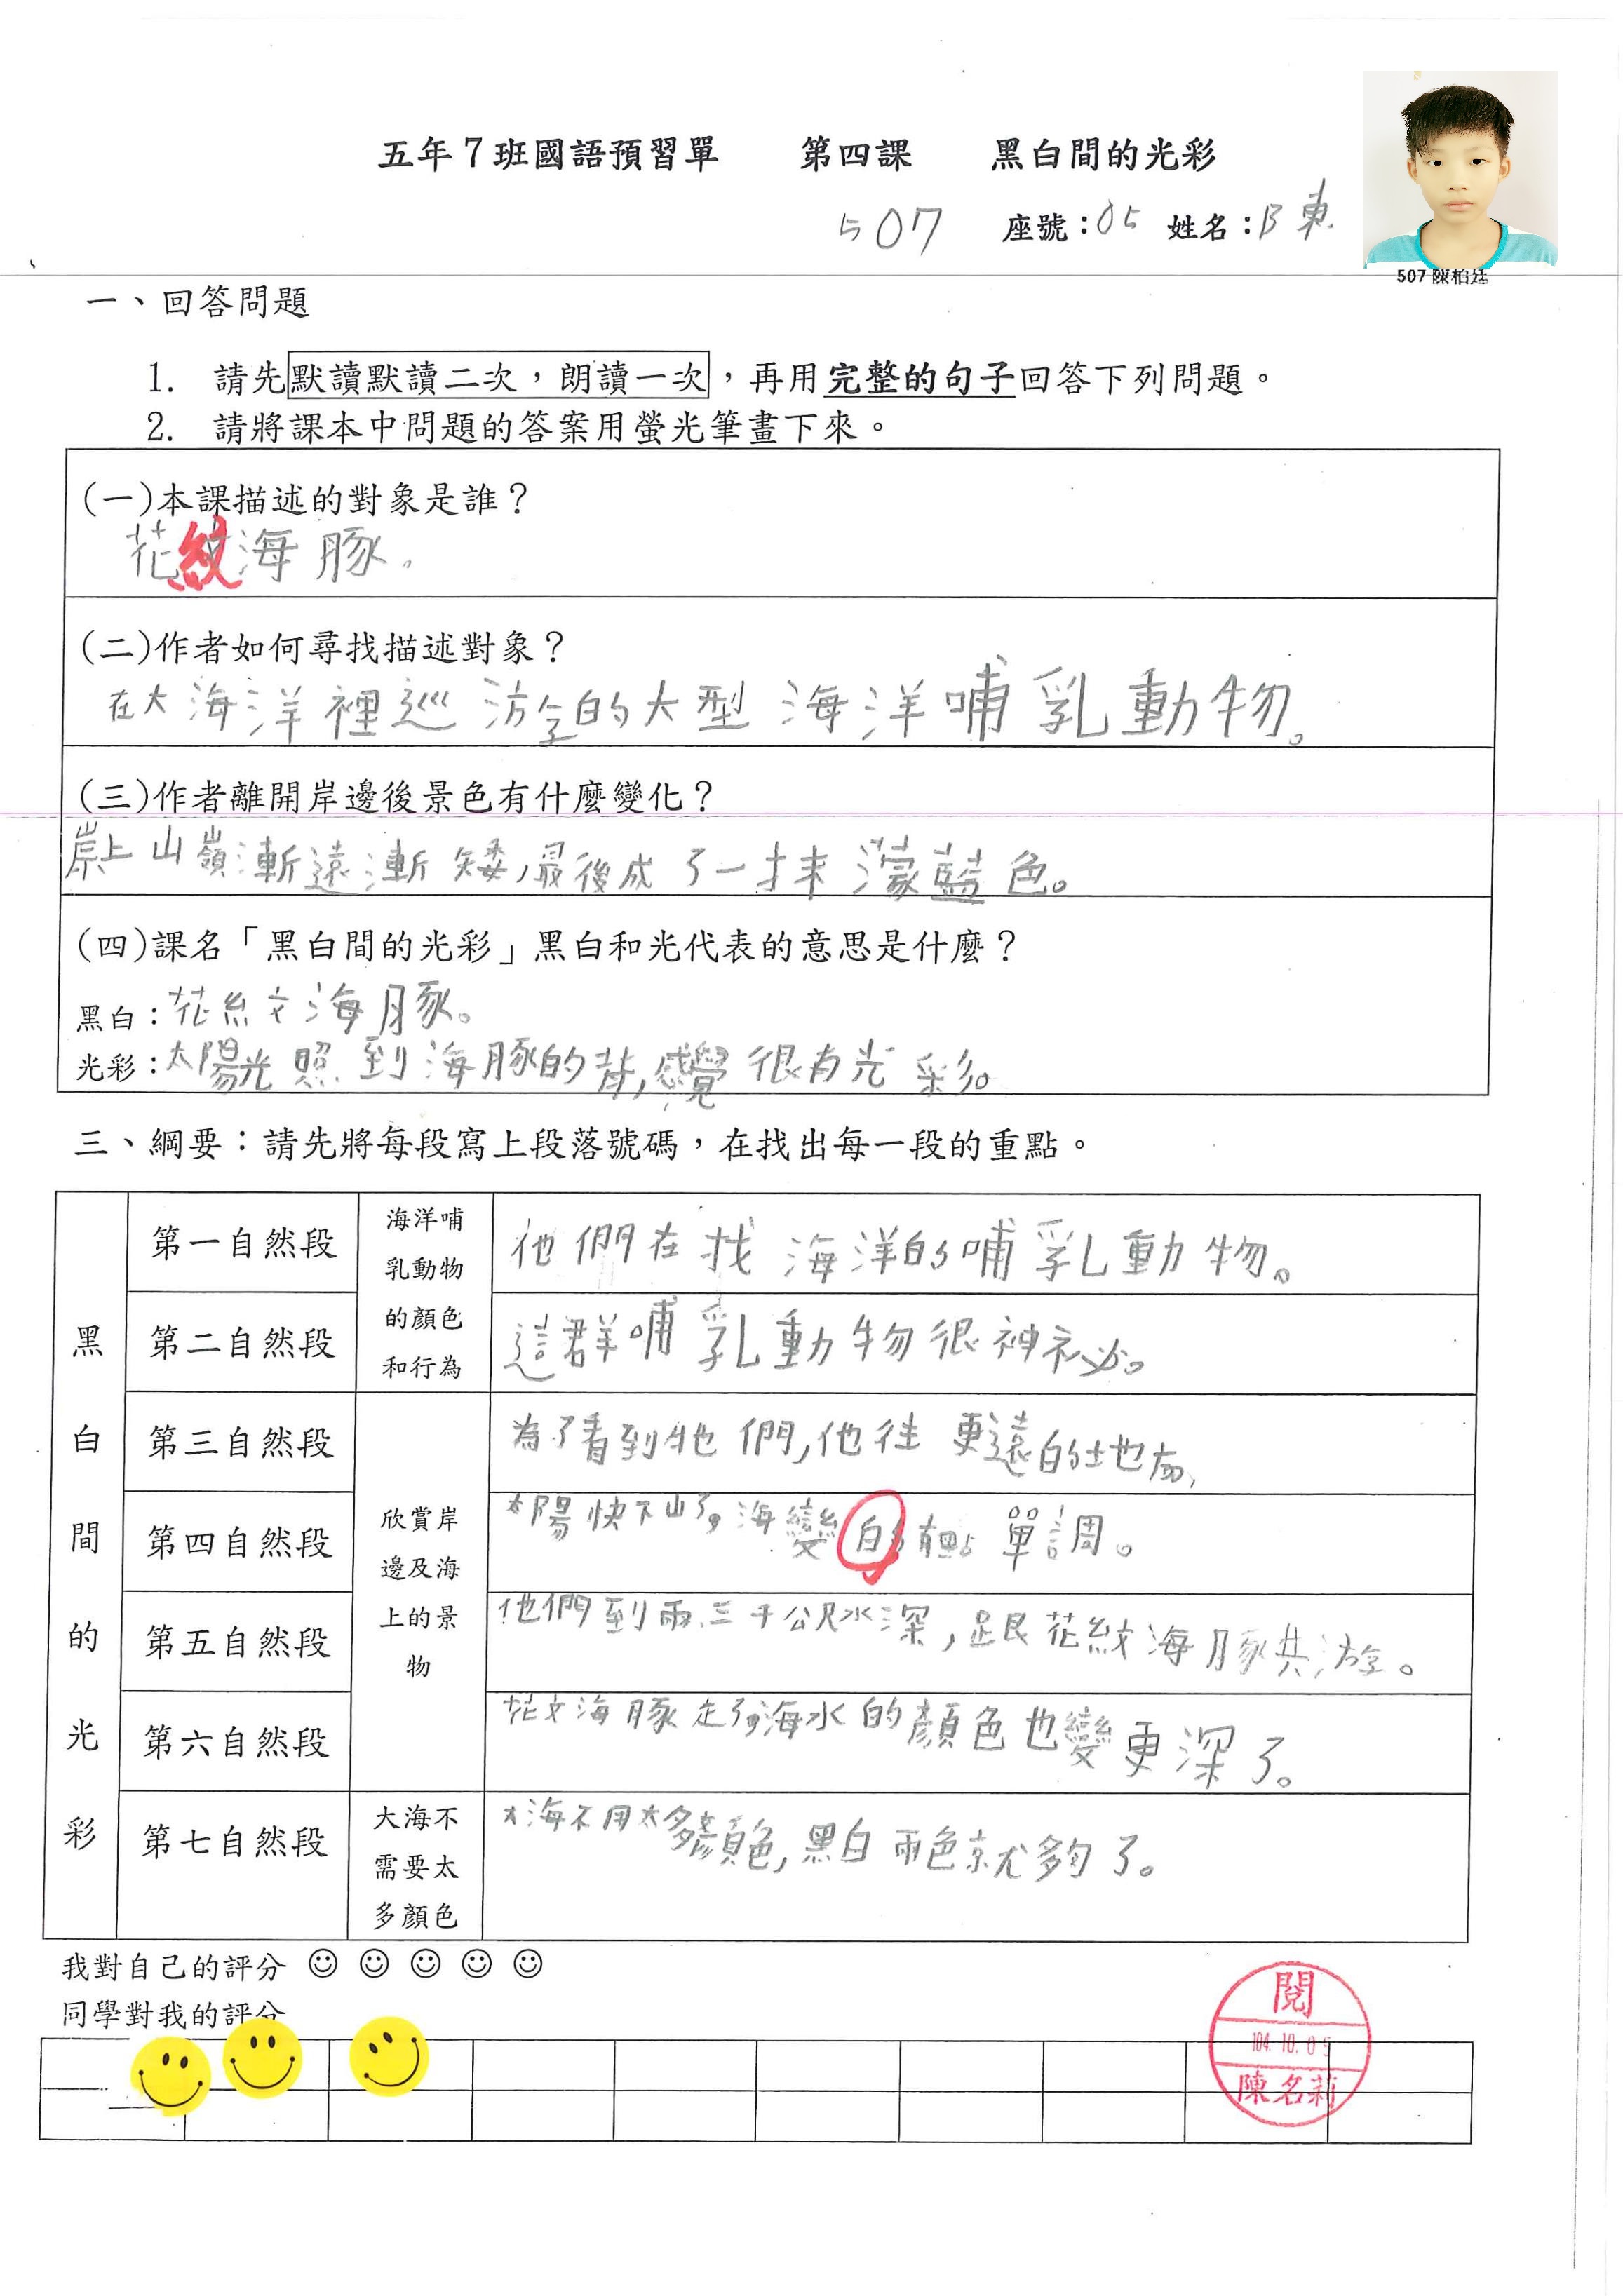 五年7班國語預習單 第四課 黑白間的光彩
507 座號：05 姓名：陳
507 陳柏廷
一、回答問題
1. 請先默讀默讀二次，朗讀一次，再用完整的句子回答下列問題。
2. 請將課本中問題的答案用螢光筆畫下來。
(一)本課描述的對象是誰？
花紋海豚。
(二)作者如何尋找描述對象？
在大海洋裡巡游的大型海洋哺乳動物。
(三)作者離開岸邊後景色有什麼變化？
岸上山嶺漸遠漸矮,最後成了一抹濛藍色。
(四)課名「黑白間的光彩」黑白和光代表的意思是什麼？
黑白：花紋海豚。
光彩：太陽光照到海豚的背,感覺很有光彩。
三、綱要：請先將每段寫上段落號碼，在找出每一段的重點。
黑白間的光彩
第一自然段
海洋哺乳動物的顏色和行為
他們在找海洋的哺乳動物。
第二自然段
這群哺乳動物很神祕。
第三自然段
欣賞岸邊及海上的景物
為了看到牠們,他往更遠的地方。
第四自然段
太陽快下山了,海變的有點單調。
第五自然段
他們到兩、三千公尺水深,跟花紋海豚共游。
第六自然段
花文海豚走了,海水的顏色也變更深了。
第七自然段
大海不需要太多顏色
大海不用太多顏色,黑白兩色就夠了。
我對自己的評分 ☺ ☺ ☺ ☺ ☺
同學對我的評分
閱
104.10.05
陳名莉